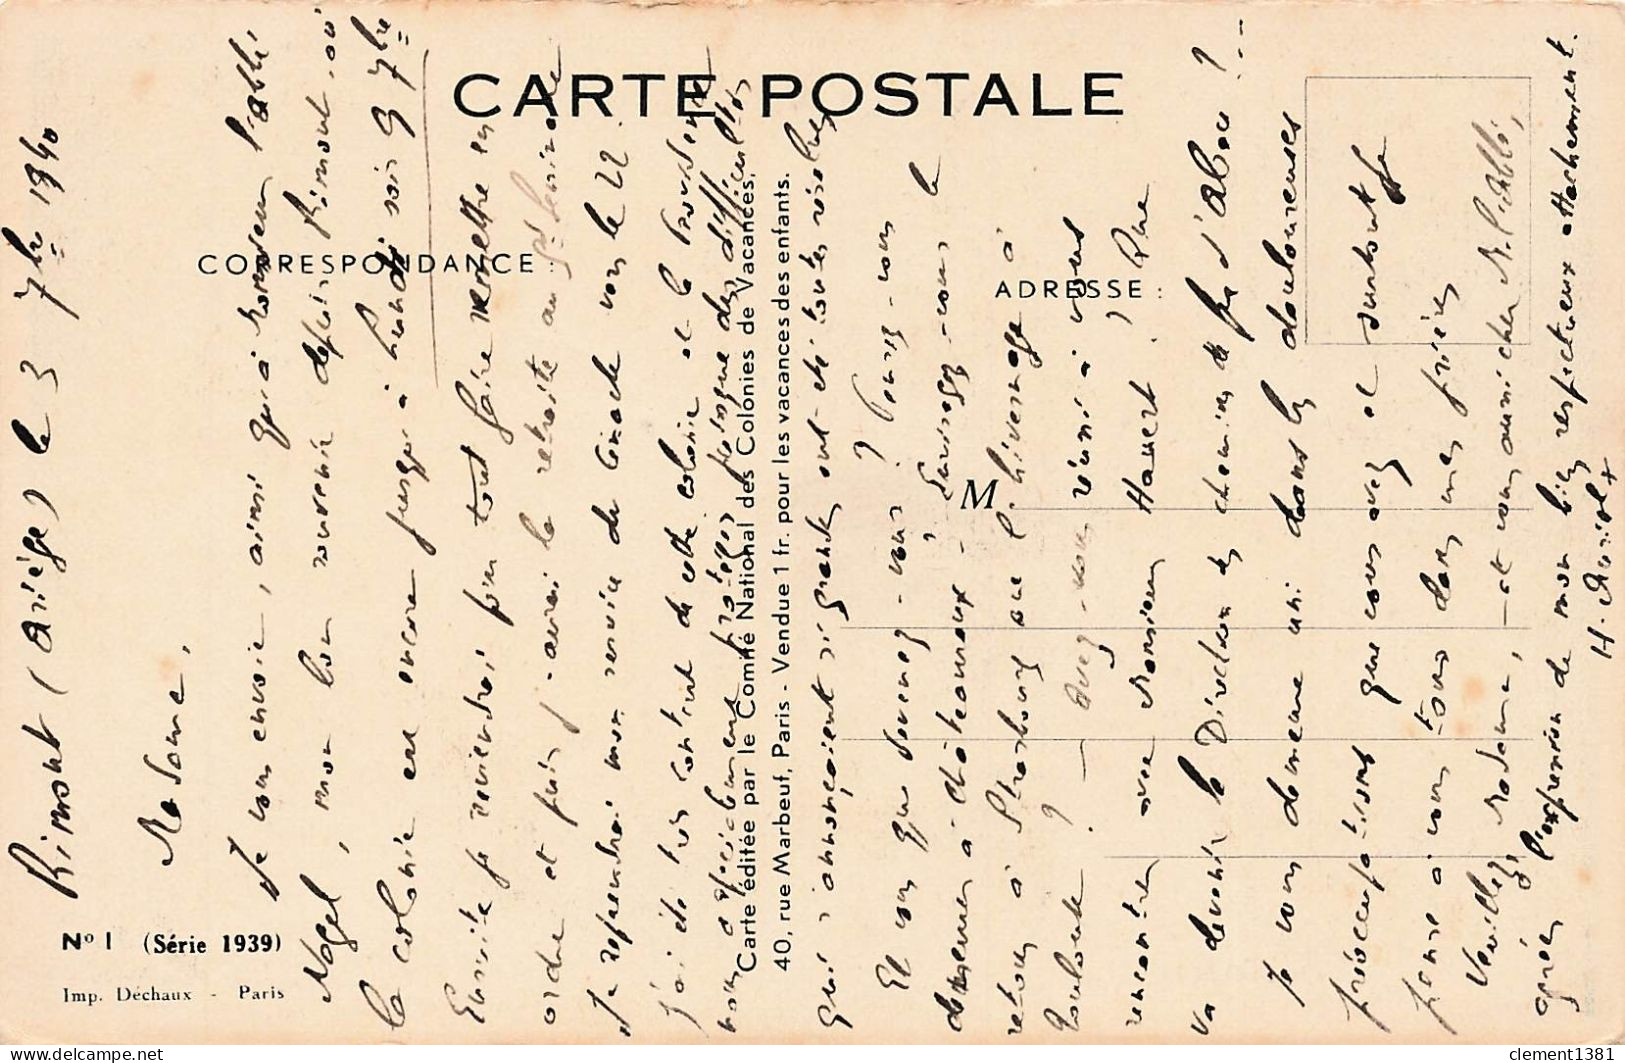 CARTE POSTALE
CORRESPONDANCE :
ADRESSE :
M
Carte éditée par le Comité National des Colonies de Vacances,
40, rue Marbeuf, Paris - Vendue 1 fr. pour les vacances des enfants.
N° 1 (Série 1939)
Imp. Déchaux - Paris
Rimont (Ariège) le 3 7bre 1940
Madame,
Je vous envoie, ainsi qu'à Monsieur l'abbé
Nagel, mon bon souvenir depuis Rimont où
la colonie est encore jusqu'à lundi soir 9 7bre
Ensuite je reviendrai pour tout faire remettre en
ordre et puis j'aurai la retraite au Gd Séminaire
Je reprendrai mon service de Cinode vers le 22.
J'ai été très content de cette colonie et la Providence
nous a spécialement protégés puisque des difficultés
qui s'annonçaient si grandes ont été toutes résolues
Et vous que devenez-vous ? Pensez-vous
demeurer à Châteauroux - Envisagez-vous le
retour à Strasbourg ou l'hivernage à
Toulouse ? - Avez-vous réussi à vous
rencontrer avec Monsieur Hauert ? Que
va devenir le Directeur des chemins de fer d'Alsace ? ...
Je vous demeure uni dans les douloureuses
préoccupations que vous avez et surtout je
pense à vous tous dans mes prières
Veuillez, Madame, et vous aussi cher M. l'abbé,
agréer l'expression de mon bien respectueux attachement.
clement1381